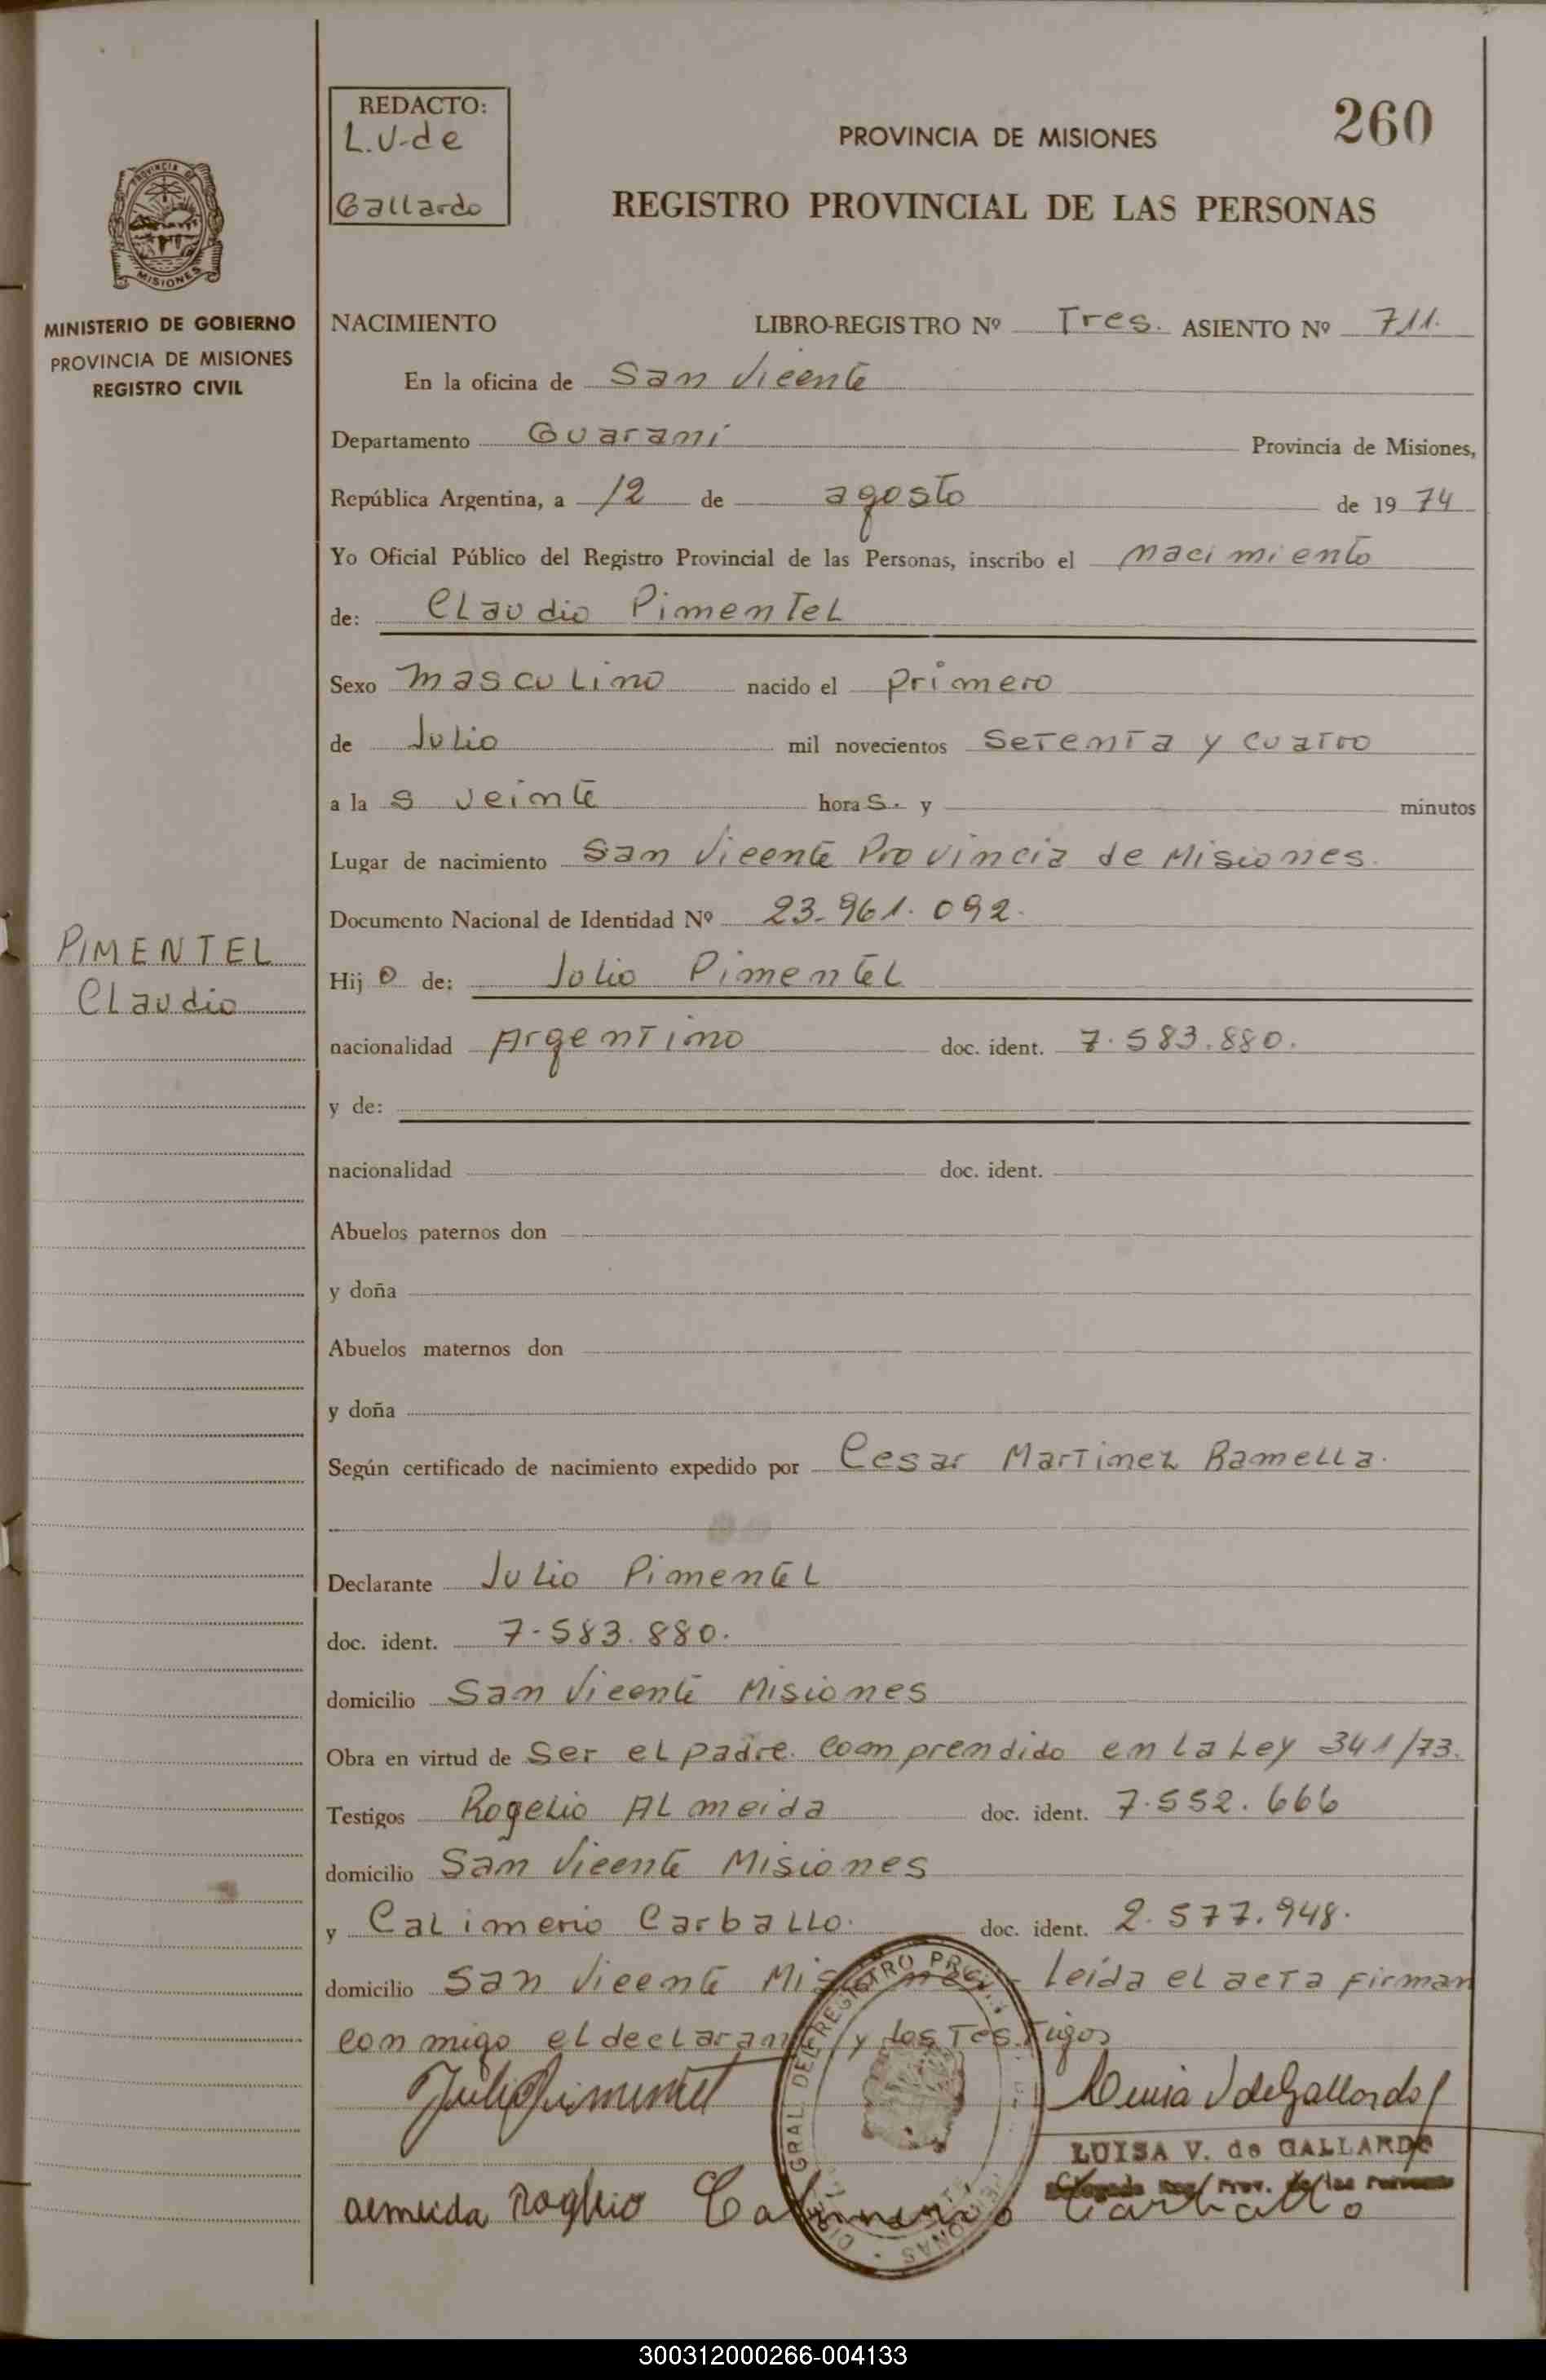 REDACTO:
L.V. de
Gallardo
260
PROVINCIA DE MISIONES
REGISTRO PROVINCIAL DE LAS PERSONAS
PROVINCIA DE
MISIONES
MINISTERIO DE GOBIERNO
PROVINCIA DE MISIONES
REGISTRO CIVIL
NACIMIENTO LIBRO-REGISTRO Nº Tres. ASIENTO Nº 711.
En la oficina de San Vicente
Departamento Guaraní Provincia de Misiones,
República Argentina, a 12 de agosto de 1974
Yo Oficial Público del Registro Provincial de las Personas, inscribo el nacimiento
de: Claudio Pimentel
Sexo masculino nacido el primero
de Julio mil novecientos setenta y cuatro
a las veinte horas. y minutos
Lugar de nacimiento San Vicente Provincia de Misiones.
Documento Nacional de Identidad Nº 23.961.092.
PIMENTEL
Claudio
Hijo de: Julio Pimentel
nacionalidad Argentino doc. ident. 7.583.880.
y de:
nacionalidad doc. ident.
Abuelos paternos don
y doña
Abuelos maternos don
y doña
Según certificado de nacimiento expedido por Cesar Martinez Ramella.
Declarante Julio Pimentel
doc. ident. 7.583.880.
domicilio San Vicente Misiones
Obra en virtud de ser el padre. comprendido en la Ley 341/73.
Testigos Rogelio Almeida doc. ident. 7.552.666
domicilio San Vicente Misiones
y Calimerio Carballo. doc. ident. 2.577.948.
domicilio San Vicente Misiones. Leída el acta firman
conmigo el declarante y los testigos
Julio Pimentel
Luisa V de Gallardo
LUISA V. de GALLARDO
Delegada Reg. Prov. de las Personas
Almeida Roglio Calimerio Carballo
GRAL. DEL REGISTRO PROV.
300312000266-004133